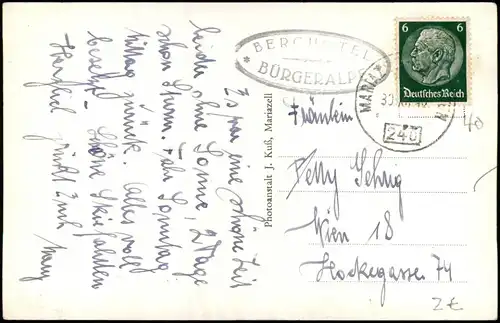 Es war eine schöne Zeit
leider ohne Sonne, 2 Tage
schon Sturm. Fahre Sonntag
Mittag zurück. Alles voll
besetzt. Schöne Skifahrten
Herzlich grüßt Euch
BERGHOTEL
* BÜRGERALPE *
MARIAZ
240
6 6
Deutsches Reich
40
Fräulein
Wien 18
Hockegasse 74
2€
Photoanstalt J. Kuß, Mariazell